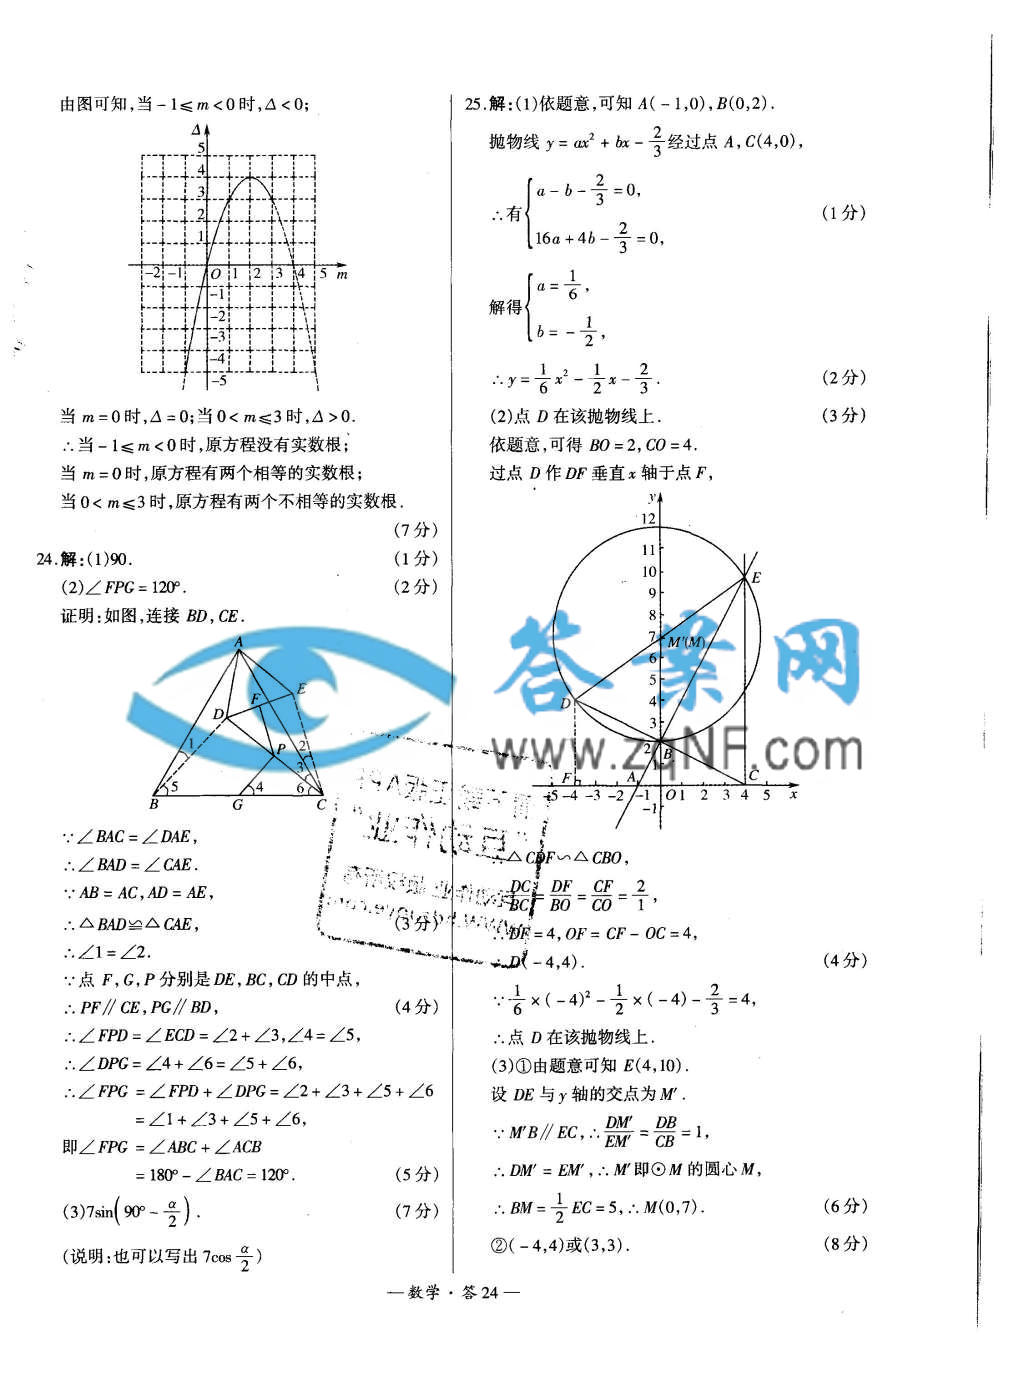 由图可知,当-1≤m<0时,Δ<0;
Δ
5
4
3
2
1
-2 -1 O 1 2 3 4 5 m
-1
-2
-3
-4
-5
当m=0时,Δ=0;当0<m≤3时,Δ>0.
∴当-1≤m<0时,原方程没有实数根;
当m=0时,原方程有两个相等的实数根;
当0<m≤3时,原方程有两个不相等的实数根.
(7分)
24.解:(1)90. (1分)
(2)∠FPG=120°. (2分)
证明:如图,连接BD,CE.
A
E
F
D
P
1 2
3
5 4 6
B G C
∵∠BAC=∠DAE,
∴∠BAD=∠CAE.
∵AB=AC,AD=AE,
∴△BAD≌△CAE, (3分)
∴∠1=∠2.
∵点F,G,P分别是DE,BC,CD的中点,
∴PF∥CE,PG∥BD, (4分)
∴∠FPD=∠ECD=∠2+∠3,∠4=∠5,
∴∠DPG=∠4+∠6=∠5+∠6,
∴∠FPG=∠FPD+∠DPG=∠2+∠3+∠5+∠6
=∠1+∠3+∠5+∠6,
即∠FPG=∠ABC+∠ACB
=180°-∠BAC=120°. (5分)
(3)7sin(90°-α/2). (7分)
(说明:也可以写出7cos α/2)
25.解:(1)依题意,可知A(-1,0),B(0,2).
抛物线y=ax²+bx-2/3经过点A,C(4,0),
∴有{a-b-2/3=0,
16a+4b-2/3=0, (1分)
解得{a=1/6,
b=-1/2,
∴y=1/6x²-1/2x-2/3. (2分)
(2)点D在该抛物线上. (3分)
依题意,可得BO=2,CO=4.
过点D作DF垂直x轴于点F,
y
12
11
10 E
9
8
7 M′(M)
6
5
D 4
3
2 B
1
F A C
-5 -4 -3 -2 -1 O 1 2 3 4 5 x
-1
答案网
www.zqNF.com
∴△CDF∽△CBO,
∴DC/BC=DF/BO=CF/CO=2/1,
∴DF=4,OF=CF-OC=4,
∴D(-4,4). (4分)
∵1/6×(-4)²-1/2×(-4)-2/3=4,
∴点D在该抛物线上.
(3)①由题意可知E(4,10).
设DE与y轴的交点为M′.
∵M′B∥EC,∴DM′/EM′=DB/CB=1,
∴DM′=EM′,∴M′即⊙M的圆心M,
∴BM=1/2EC=5,∴M(0,7). (6分)
②(-4,4)或(3,3). (8分)
—数学·答24—